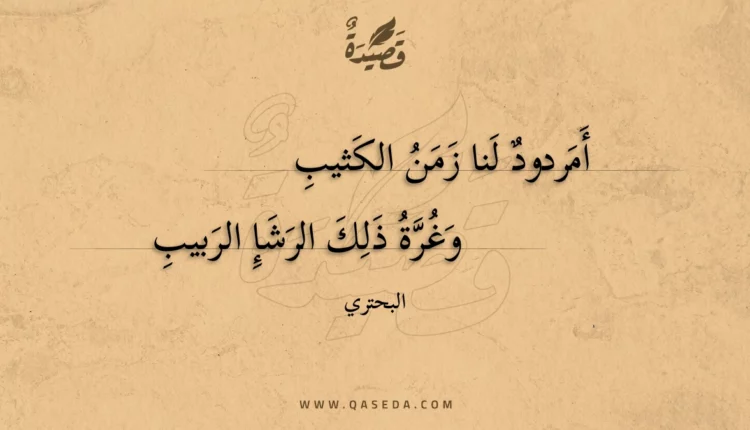 قَصِيدَةٌ
أَمَردودٌ لَنا زَمَنُ الكَثيبِ
وَغُرَّةُ ذَلِكَ الرَشَإِ الرَبيبِ
البحتري
WWW.QASEDA.COM